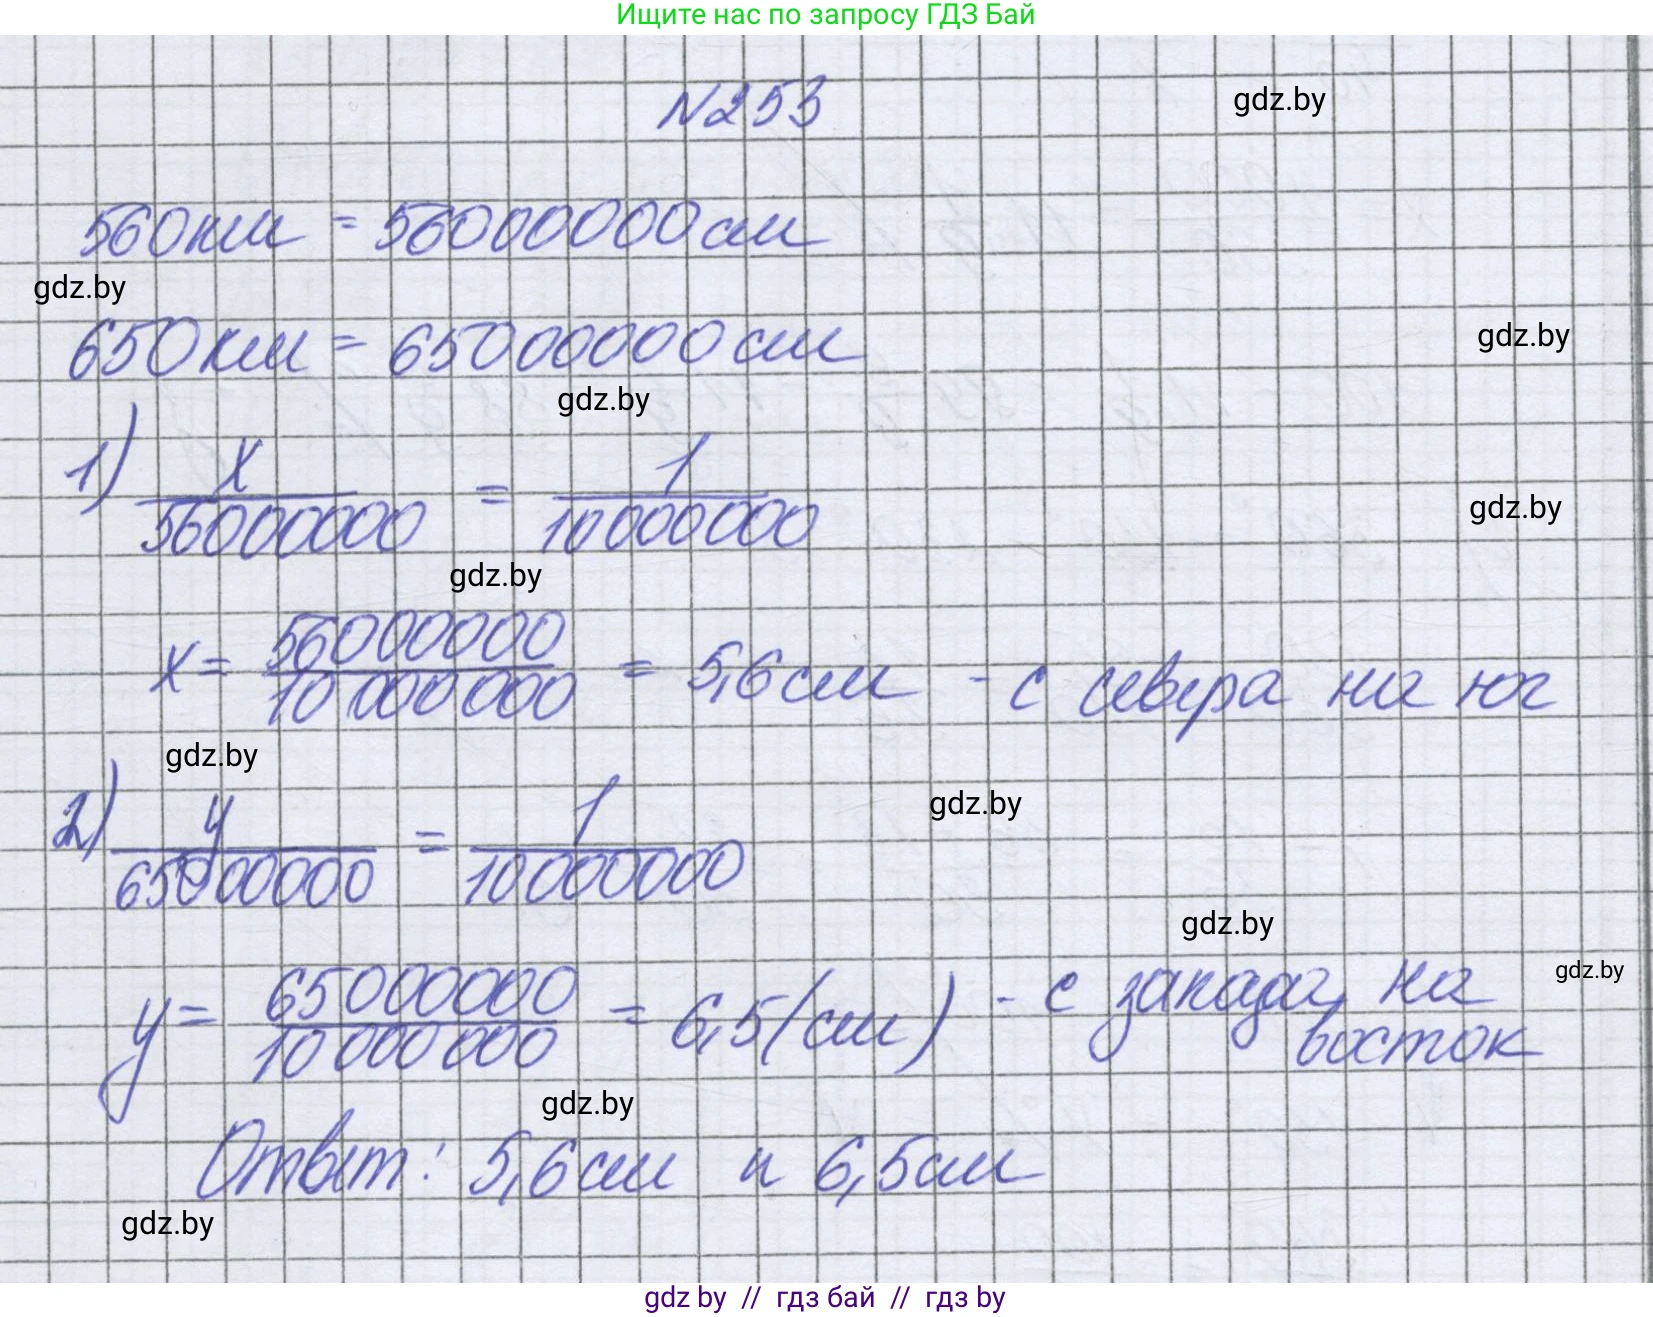 Ищите нас по запросу ГДЗ Бай
N253
gdz.by
560км = 56000000см
gdz.by
650км = 65000000см
gdz.by
gdz.by
1) x/56000000 = 1/10000000
gdz.by
gdz.by
x = 56000000/10000000 = 5,6см - с севера на юг
gdz.by
2) y/65000000 = 1/10000000
gdz.by
gdz.by
y = 65000000/10000000 = 6,5(см) - с запада на
восток
gdz.by
gdz.by
Ответ: 5,6см и 6,5см
gdz.by
gdz by // гдз бай // гдз by